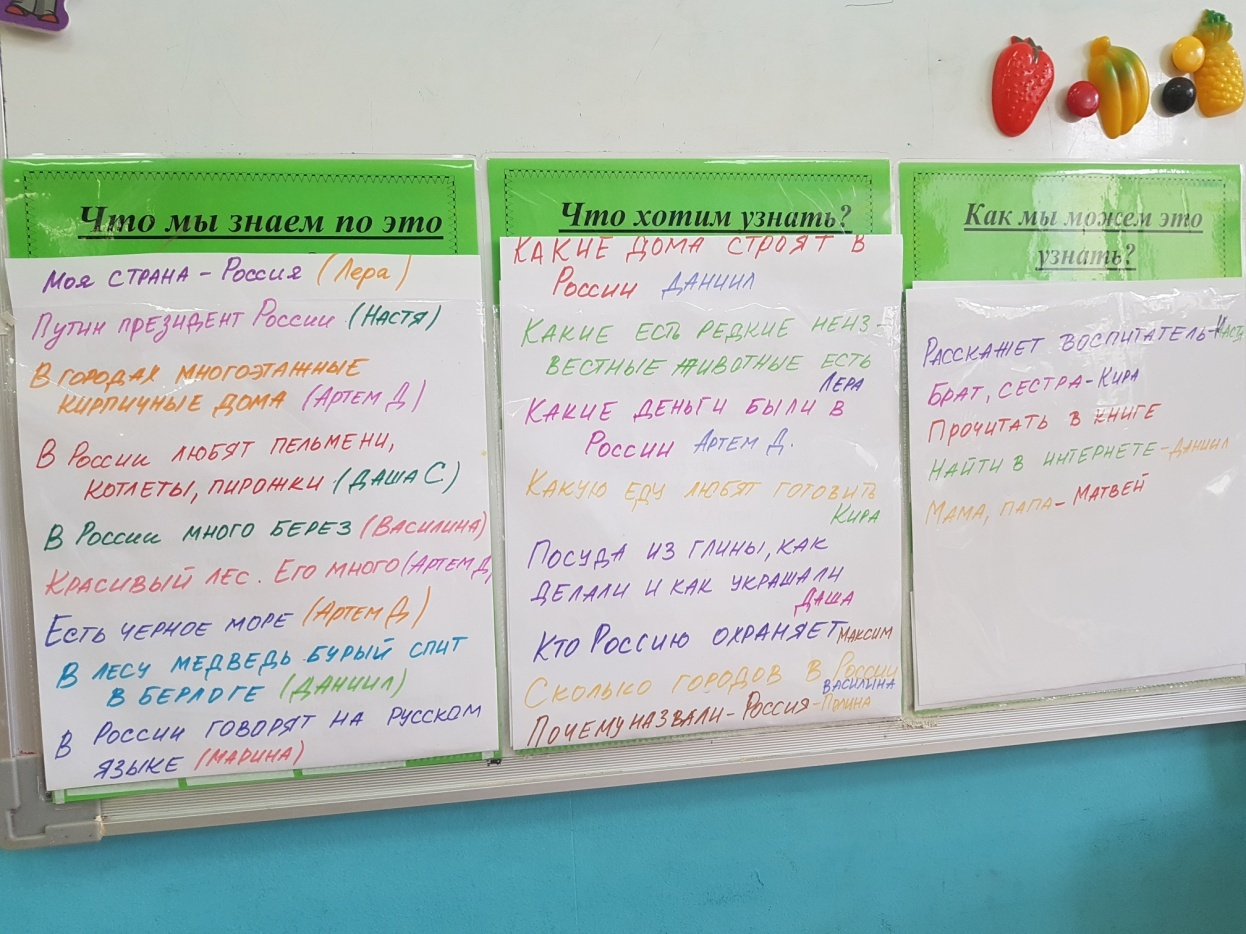 Что мы знаем по это
Моя страна - Россия (Лера)
Путин президент России (Настя)
В городах многоэтажные
кирпичные дома (Артем Д)
В России любят пельмени,
котлеты, пирожки (Даша С)
В России много берез (Василина)
Красивый лес. Его много (Артем Д)
Есть черное море (Артем Д)
В лесу медведь бурый спит
в берлоге (Даниил)
В России говорят на русском
языке (Марина)
Что хотим узнать?
Какие дома строят в
России Даниил
Какие есть редкие неиз-
вестные животные есть
Лера
Какие деньги были в
России Артем Д.
Какую еду любят готовить
Кира
Посуда из глины, как
делали и как украшали
Даша
Кто Россию охраняет Максим
Сколько городов в России
Василина
Почему назвали - Россия - Полина
Как мы можем это
узнать?
Расскажет воспитатель - Настя
Брат, сестра - Кира
Прочитать в книге
Найти в интернете - Даниил
Мама, папа - Матвей